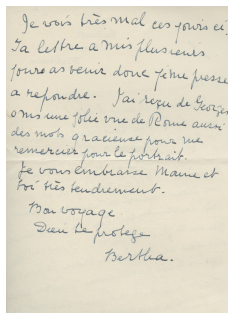 Je vois très mal ces jours ci,
Ta lettre a mis plusieurs
jours a venir donc je me presse
a repondre. J'ai reçu de Georges
une jolie vue de Rome aussi
des mots gracieuse pour me
remercier pour le portrait.
Je vous embrasse Mame et
toi très tendrement.
Bon voyage
Dieu te protège
Bertha.